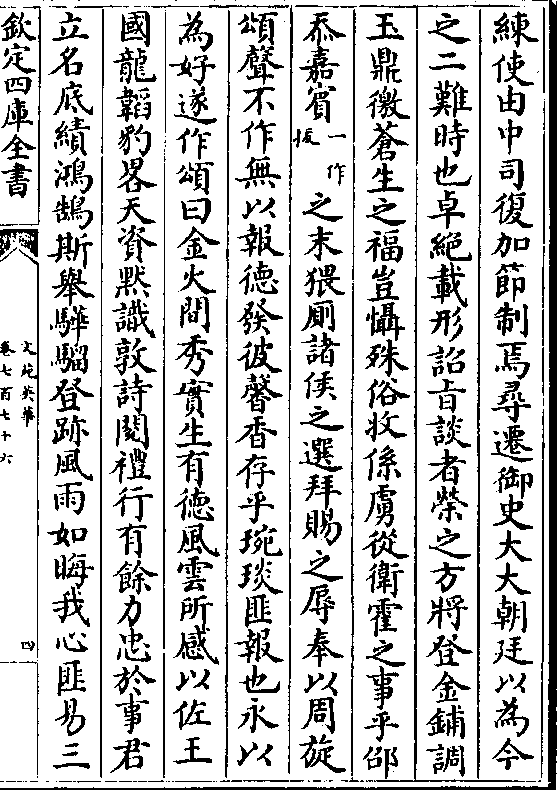 練使由中司復加節制焉尋遷御史大大朝廷以為今
之二難時也卓絕載形詔㫖談者榮之方將登金鋪調
玉鼎徼蒼生之福豈懾殊俗收係虜從衛霍之事乎邰
忝嘉賓一作援之末猥廁諸侯之選拜賜之辱奉以周旋
頌聲不作無以報德發彼馨香存乎琬琰匪報也永以
為好遂作頌曰金火間秀實生有德風雲所感以佐王
國龍韜豹畧天資黙識敦詩閲禮行有餘力忠於事君
立名底績鴻鵠斯舉驊騮登跡風雨如晦我心匪易三
欽定四庫全書
文苑英華
卷七百七十六
四